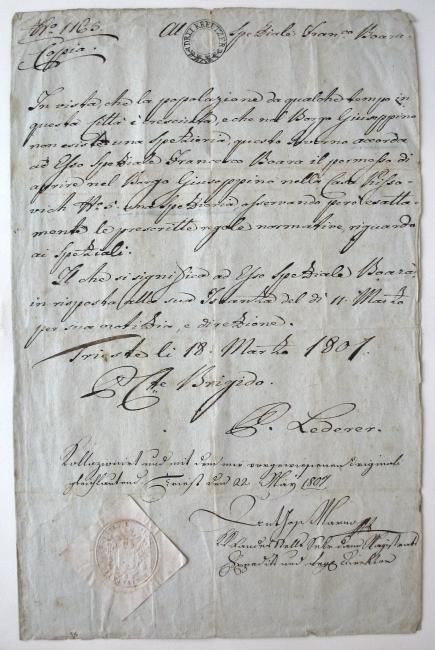 No. 1163.
Copia.
DREI KREUTZER
Al Speziale Franco. Boara.
In vista che la popolazione da qualche tempo in
questa Città è cresciuta, e che nel Borgo Giuseppino
non esiste una Spezieria, questo Governo accorda
ad Esso Speziale Francesco Boara il permesso di
aprire nel Borgo Giuseppino nella Casa
vich No. 5 una Spezieria osservando però esatta-
mente le prescritte regole normative, riguardo
ai Speziali.
Il che si significa ad Esso Speziale Boara
in risposta alla sua Istanza del di 11. Marzo
per sua notizia, e direzione.
Trieste li 18. Marzo 1807.
Cte Brigido.
P. Lederer.
Kollazionirt und mit dem mir vorgewiesenen Original
gleichlautend Triest den 22. May 1807